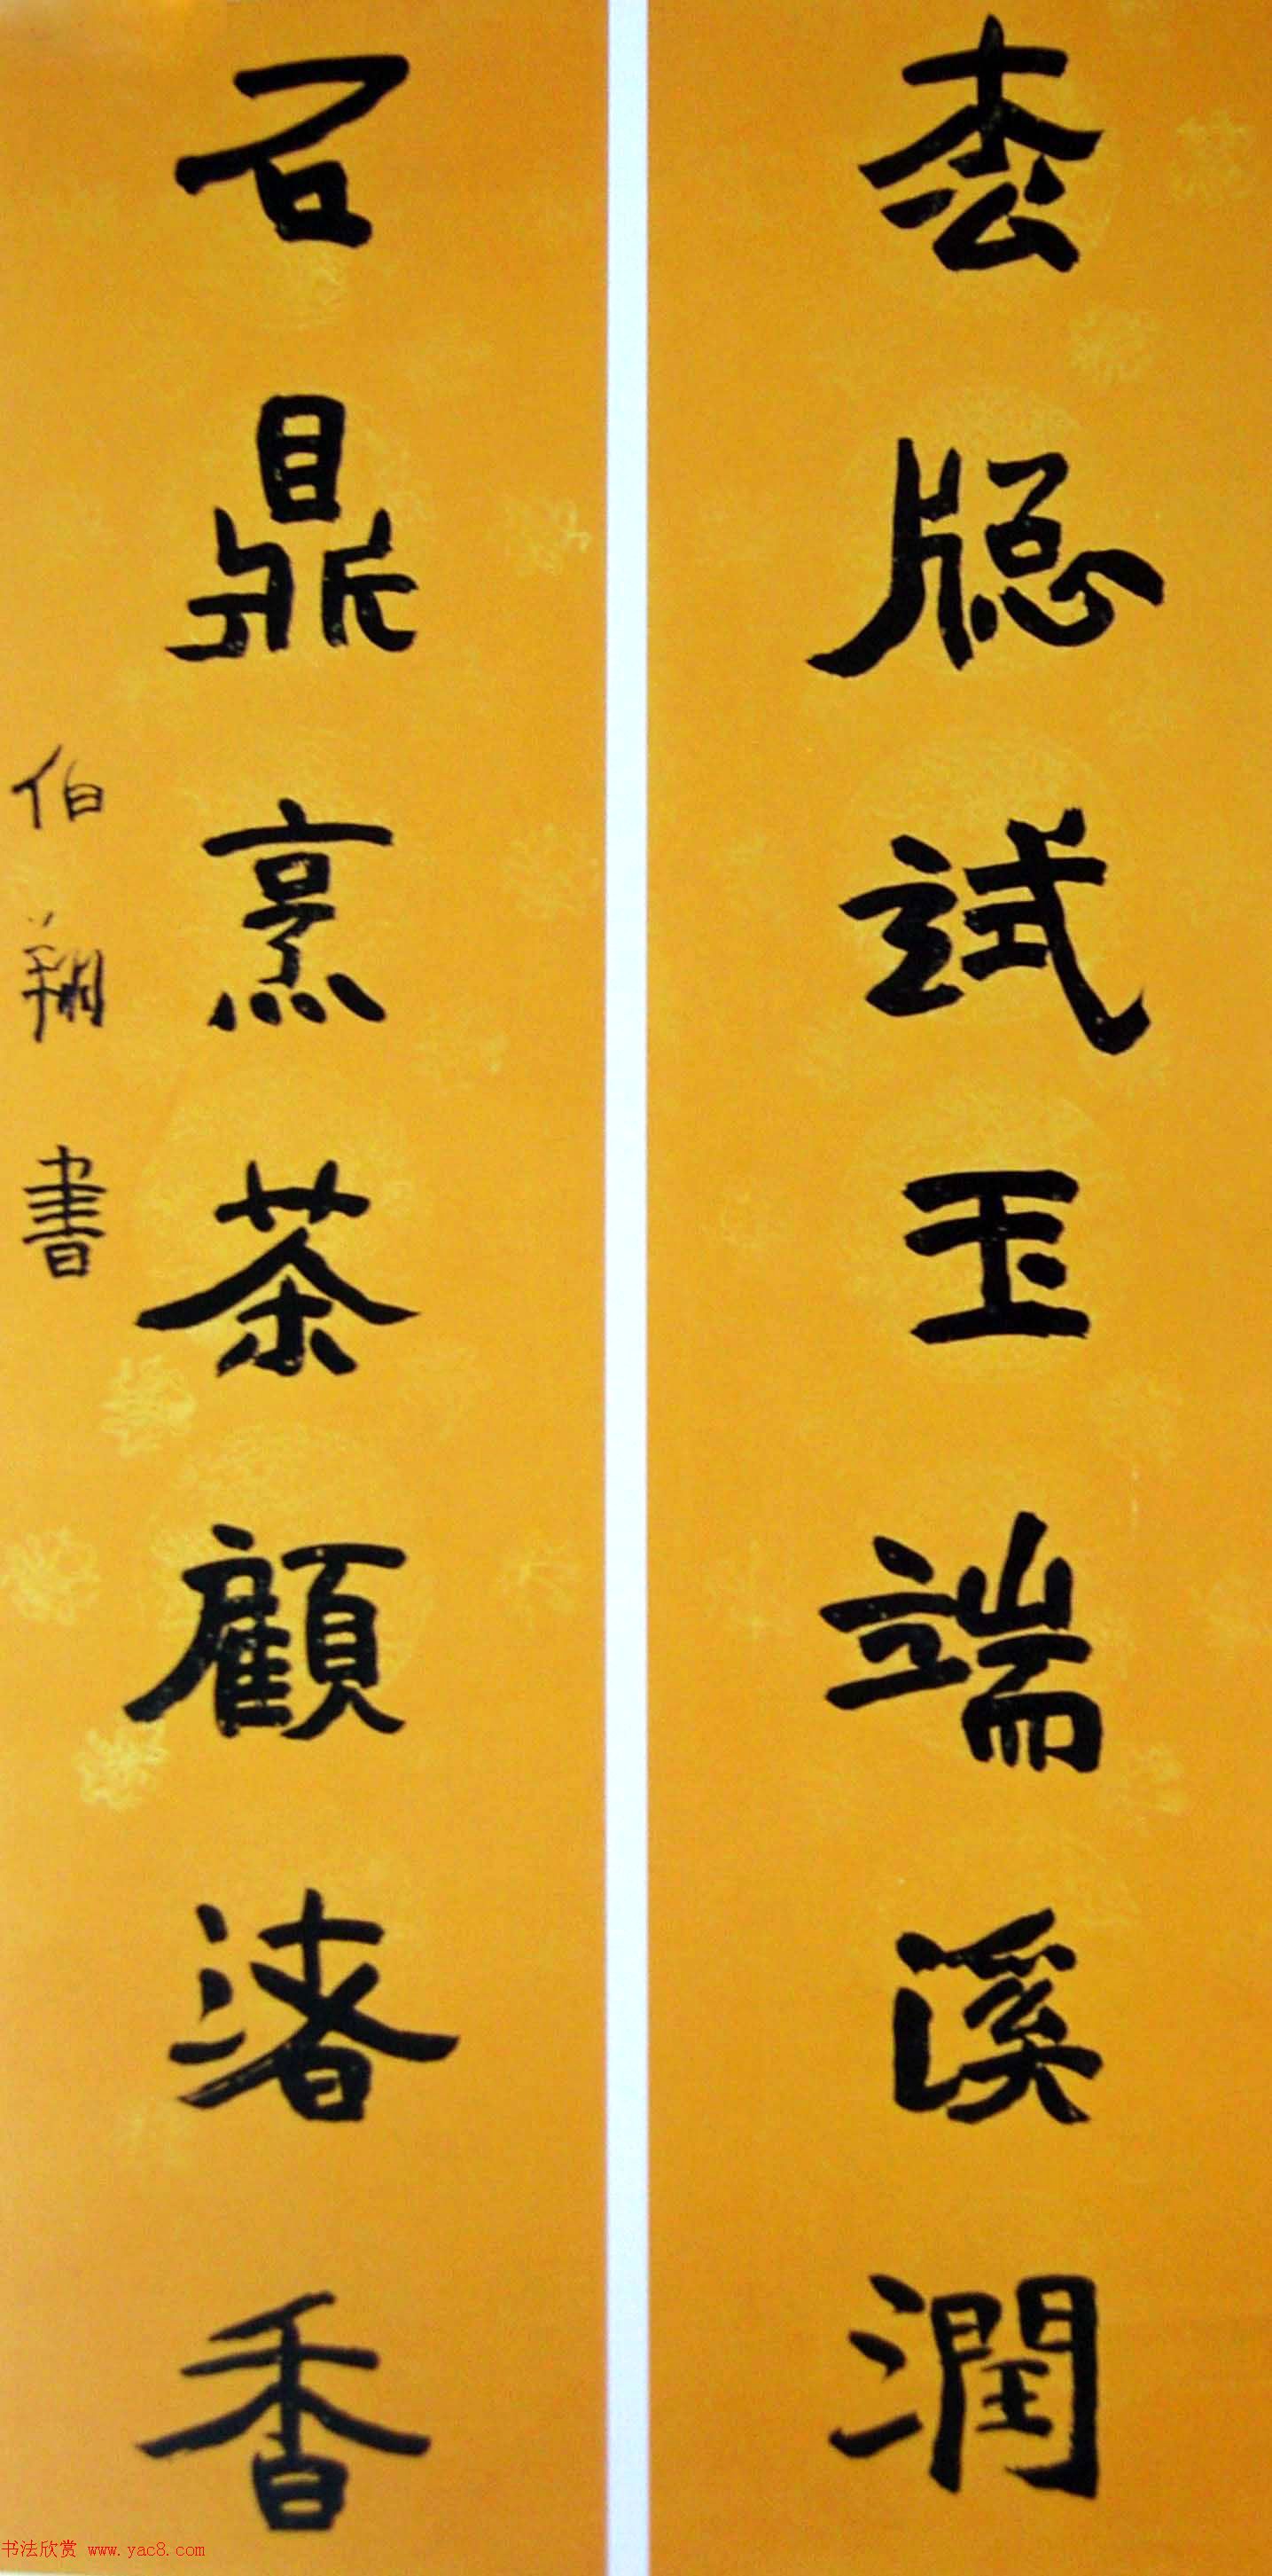 松牕試玉端溪潤
石鼎烹茶顧渚香
伯翔書
书法欣赏 www.yac8.com